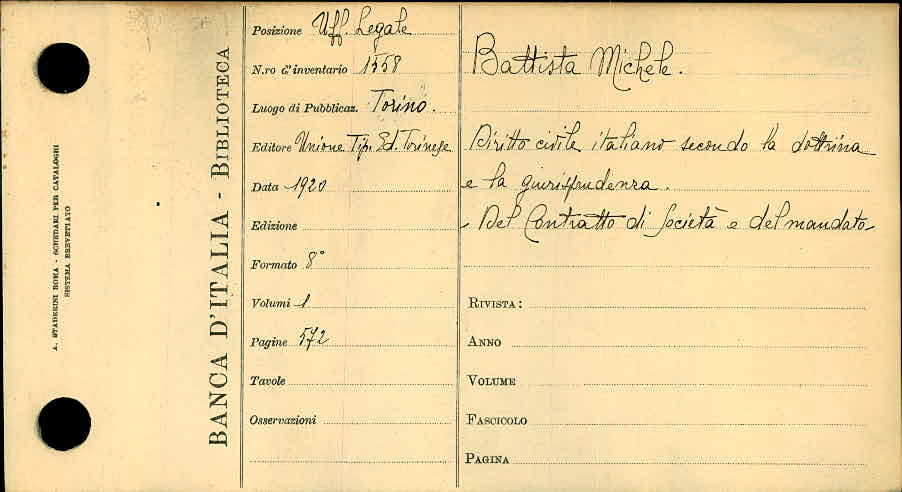 A. STADERINI ROMA - SCHEDARI PER CATALOGHI
SISTEMA BREVETTATO
BANCA D'ITALIA - BIBLIOTECA
Posizione Uff. Legale
N.ro d'inventario 1558
Luogo di Pubblicaz. Torino.
Editore Unione Tip. Ed. Torinese
Data 1920
Edizione
Formato 8°
Volumi 1
Pagine 572
Tavole
Osservazioni
Battista Michele.
Diritto civile italiano secondo la dottrina
e la giurisprudenza.
- Del Contratto di Società e del mandato -
RIVISTA:
ANNO
VOLUME
FASCICOLO
PAGINA